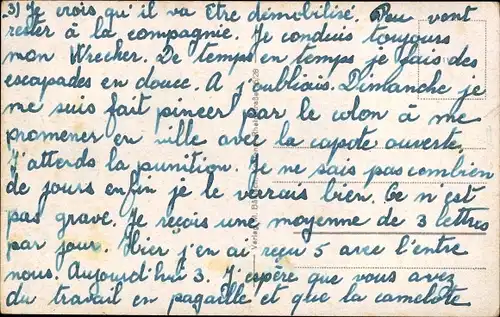 3) Je crois qu'il va être démobilisé. Peu vont
rester à la compagnie. Je conduis toujours
mon Wrecker. De temps en temps je fais des
escapades en douce. A j'oubliais. Dimanche je
me suis fait pincer par le colon à me
promener en ville avec la capote ouverte.
J'attends la punition. Je ne sais pas combien
de jours enfin je le verrais bien. Ce n'est
pas grave. Je reçois une moyenne de 3 lettres
par jour. Hier j'en ai reçu 5 avec l'entre
nous. Aujourd'hui 3. J'espère que vous avez
du travail en pagaille et que la camelote